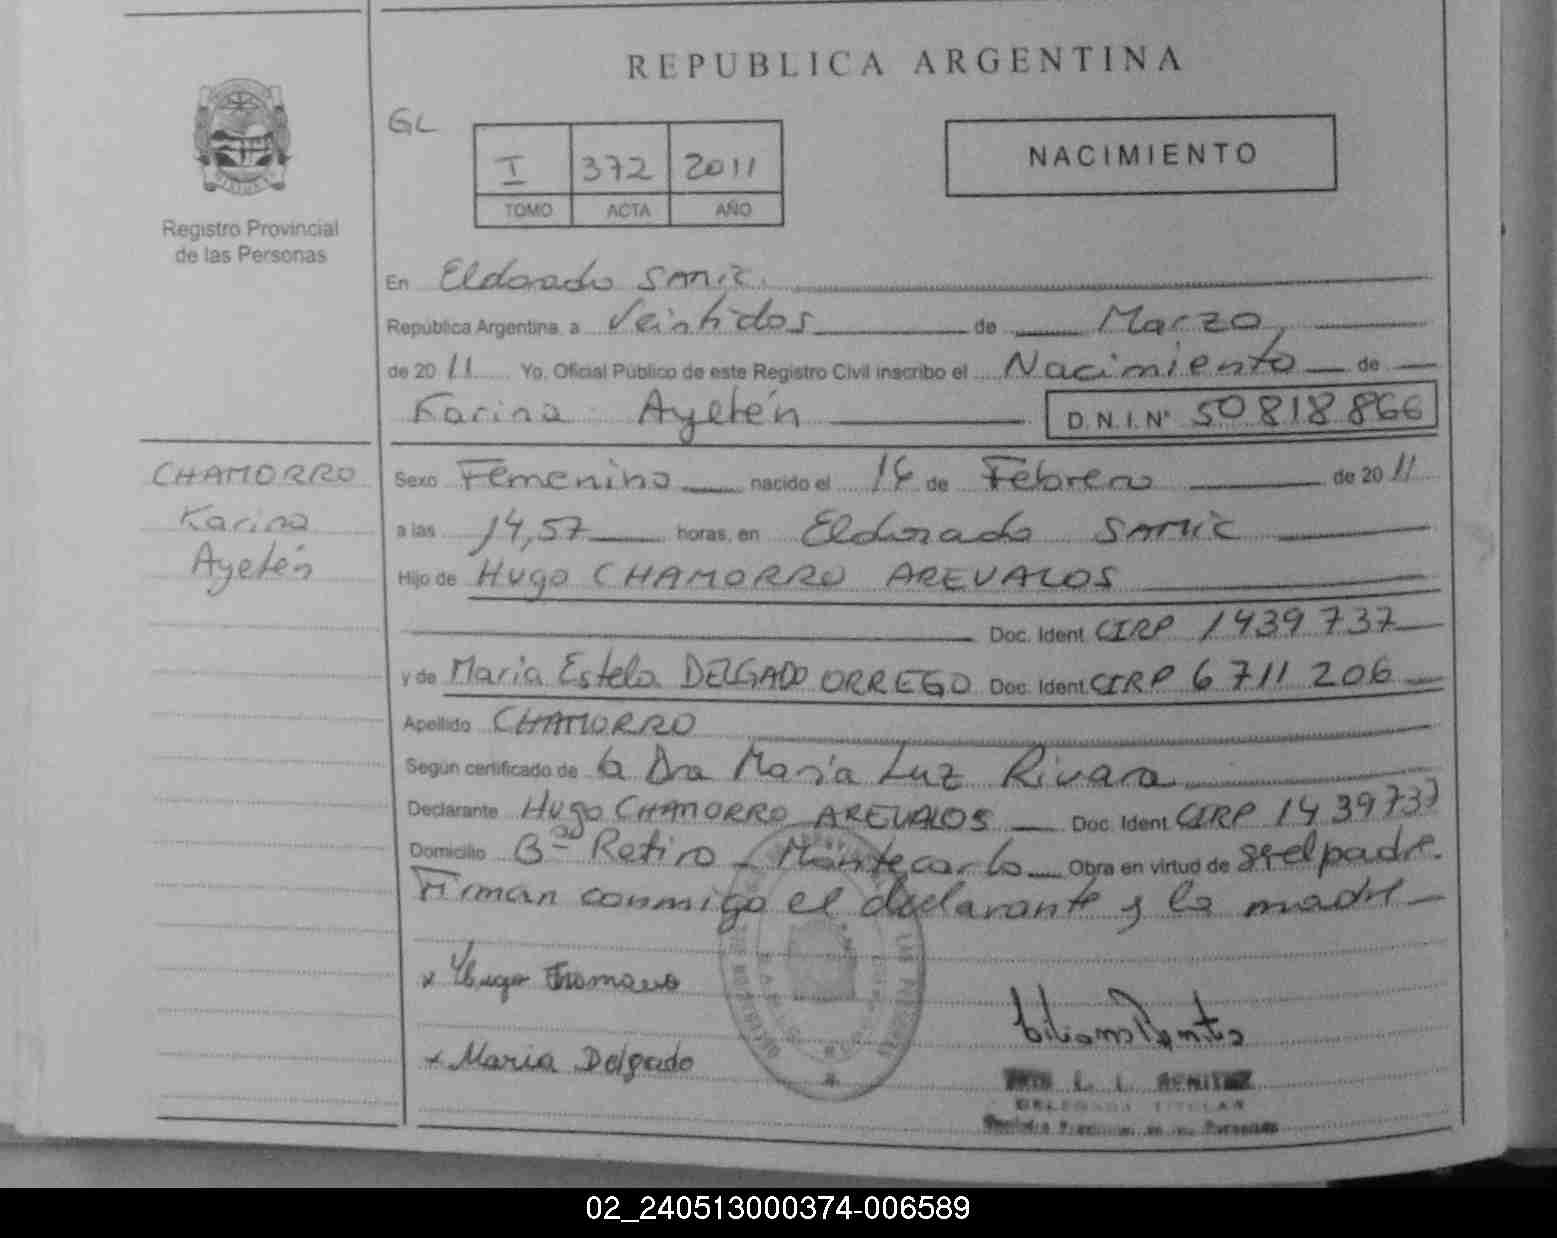 REPUBLICA ARGENTINA
GL
I 372 2011
TOMO ACTA AÑO
NACIMIENTO
Registro Provincial
de las Personas
En Eldorado SAMIC
República Argentina, a Veintidos de Marzo,
de 2011 Yo, Oficial Público de este Registro Civil inscribo el Nacimiento de
Karina Ayelén D.N.I. N° 50818866
CHAMORRO
Karina
Ayelén
Sexo Femenino nacido el 14 de Febrero de 2011
a las 14,57 horas, en Eldorado SAMIC
Hijo de Hugo CHAMORRO AREVALOS
Doc. Ident. CIRP 1439737
y de Maria Estela DELGADO ORREGO Doc. Ident. CIRP 6711206
Apellido CHAMORRO
Según certificado de la Dra Maria Luz Rivara
Declarante Hugo CHAMORRO AREVALOS Doc. Ident. CIRP 1439737
Domicilio B° Retiro - Montecarlo Obra en virtud de ser el padre.
Firman conmigo el declarante y la madre
x Hugo Chamorro
x Maria Delgado
L. I. BENITEZ
DELEGADA TITULAR
Registro Provincial de las Personas
02_240513000374-006589